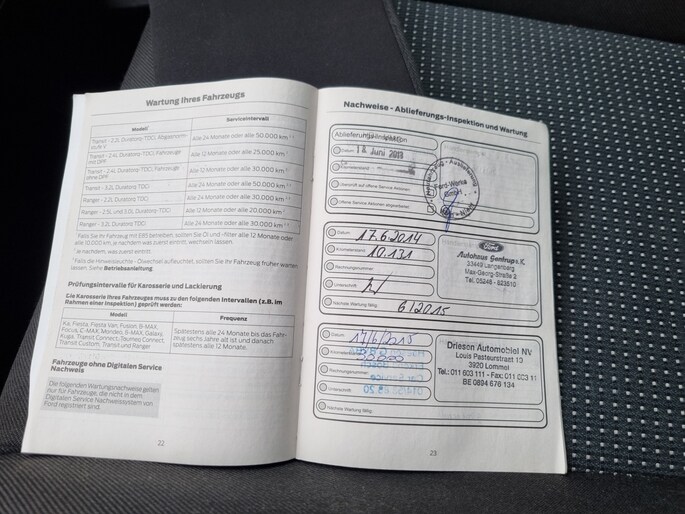 Wartung Ihres Fahrzeugs
Modell Serviceintervall
Transit - 2.2L Duratorq-TDCi, Abgasnorm
Alle 24 Monate oder alle 50.000 km
Transit - 2.4L Duratorq-TDCi, Fahrzeuge mit DPF
Alle 12 Monate oder alle 25.000 km
Transit - 2.4L Duratorq-TDCi, Fahrzeuge ohne DPF
Alle 12 Monate oder alle 30.000 km
Transit - 3.2L Duratorq-TDCi
Alle 24 Monate oder alle 50.000 km
Ranger - 2.2L Duratorq-TDCi
Alle 24 Monate oder alle 30.000 km
Ranger - 2.5L und 3.0L Duratorq-TDCi
Alle 12 Monate oder alle 20.000 km
Ranger - 3.2L Duratorq-TDCi
Alle 24 Monate oder alle 30.000 km
Falls Sie Ihr Fahrzeug mit E85 betreiben, sollten Sie Öl und -filter alle 12 Monate oder
alle 10.000 km, je nachdem was zuerst eintritt, wechseln lassen.
Je nachdem, was zuerst eintritt.
Falls die Hinweisleuchte - Ölwechsel aufleuchtet, sollten Sie Ihr Fahrzeug früher warten
lassen. Siehe Betriebsanleitung.
Prüfungsintervalle für Karosserie und Lackierung
Die Karosserie Ihres Fahrzeugs muss zu den folgenden Intervallen (z.B. im
Rahmen einer Inspektion) geprüft werden:
Modell Frequenz
Ka, Fiesta, Fiesta Van, Fusion, B-MAX,
Focus, C-MAX, Mondeo, S-MAX, Galaxy,
Kuga, Transit Connect/Tourneo Connect,
Transit Custom, Transit und Ranger
Spätestens alle 24 Monate bis das Fahr-
zeug sechs Jahre alt ist und danach
spätestens alle 12 Monate.
Fahrzeuge ohne Digitalen Service
Nachweis
Die folgenden Wartungsnachweise gelten
nur für Fahrzeuge, die nicht in dem
Digitalen Service Nachweissystem von
Ford registriert sind.
22
Nachweise - Ablieferungs-Inspektion und Wartung
Ablieferungs-Inspektion
Datum 18. Juni 2013
Kilometerstand
Geprüft auf offene Service Aktionen
Offene Service Aktionen abgearbeitet
Ford-Werke
GmbH
Datum 17.6.2014
Kilometerstand 10.131
Rechnungsnummer
Unterschrift
Nächste Wartung fällig: 6/2015
Ford
Autohaus Gentrup e.K.
33449 Langenberg
Max-Georg-Straße 2
Tel. 05248 - 823510
Datum 17/6/2015
Kilometerstand
Rechnungsnummer
Unterschrift
Nächste Wartung fällig:
Driesen Automobiel NV
Louis Pasteurstraat 13
3920 Lommel
BE 0894 676 134
23